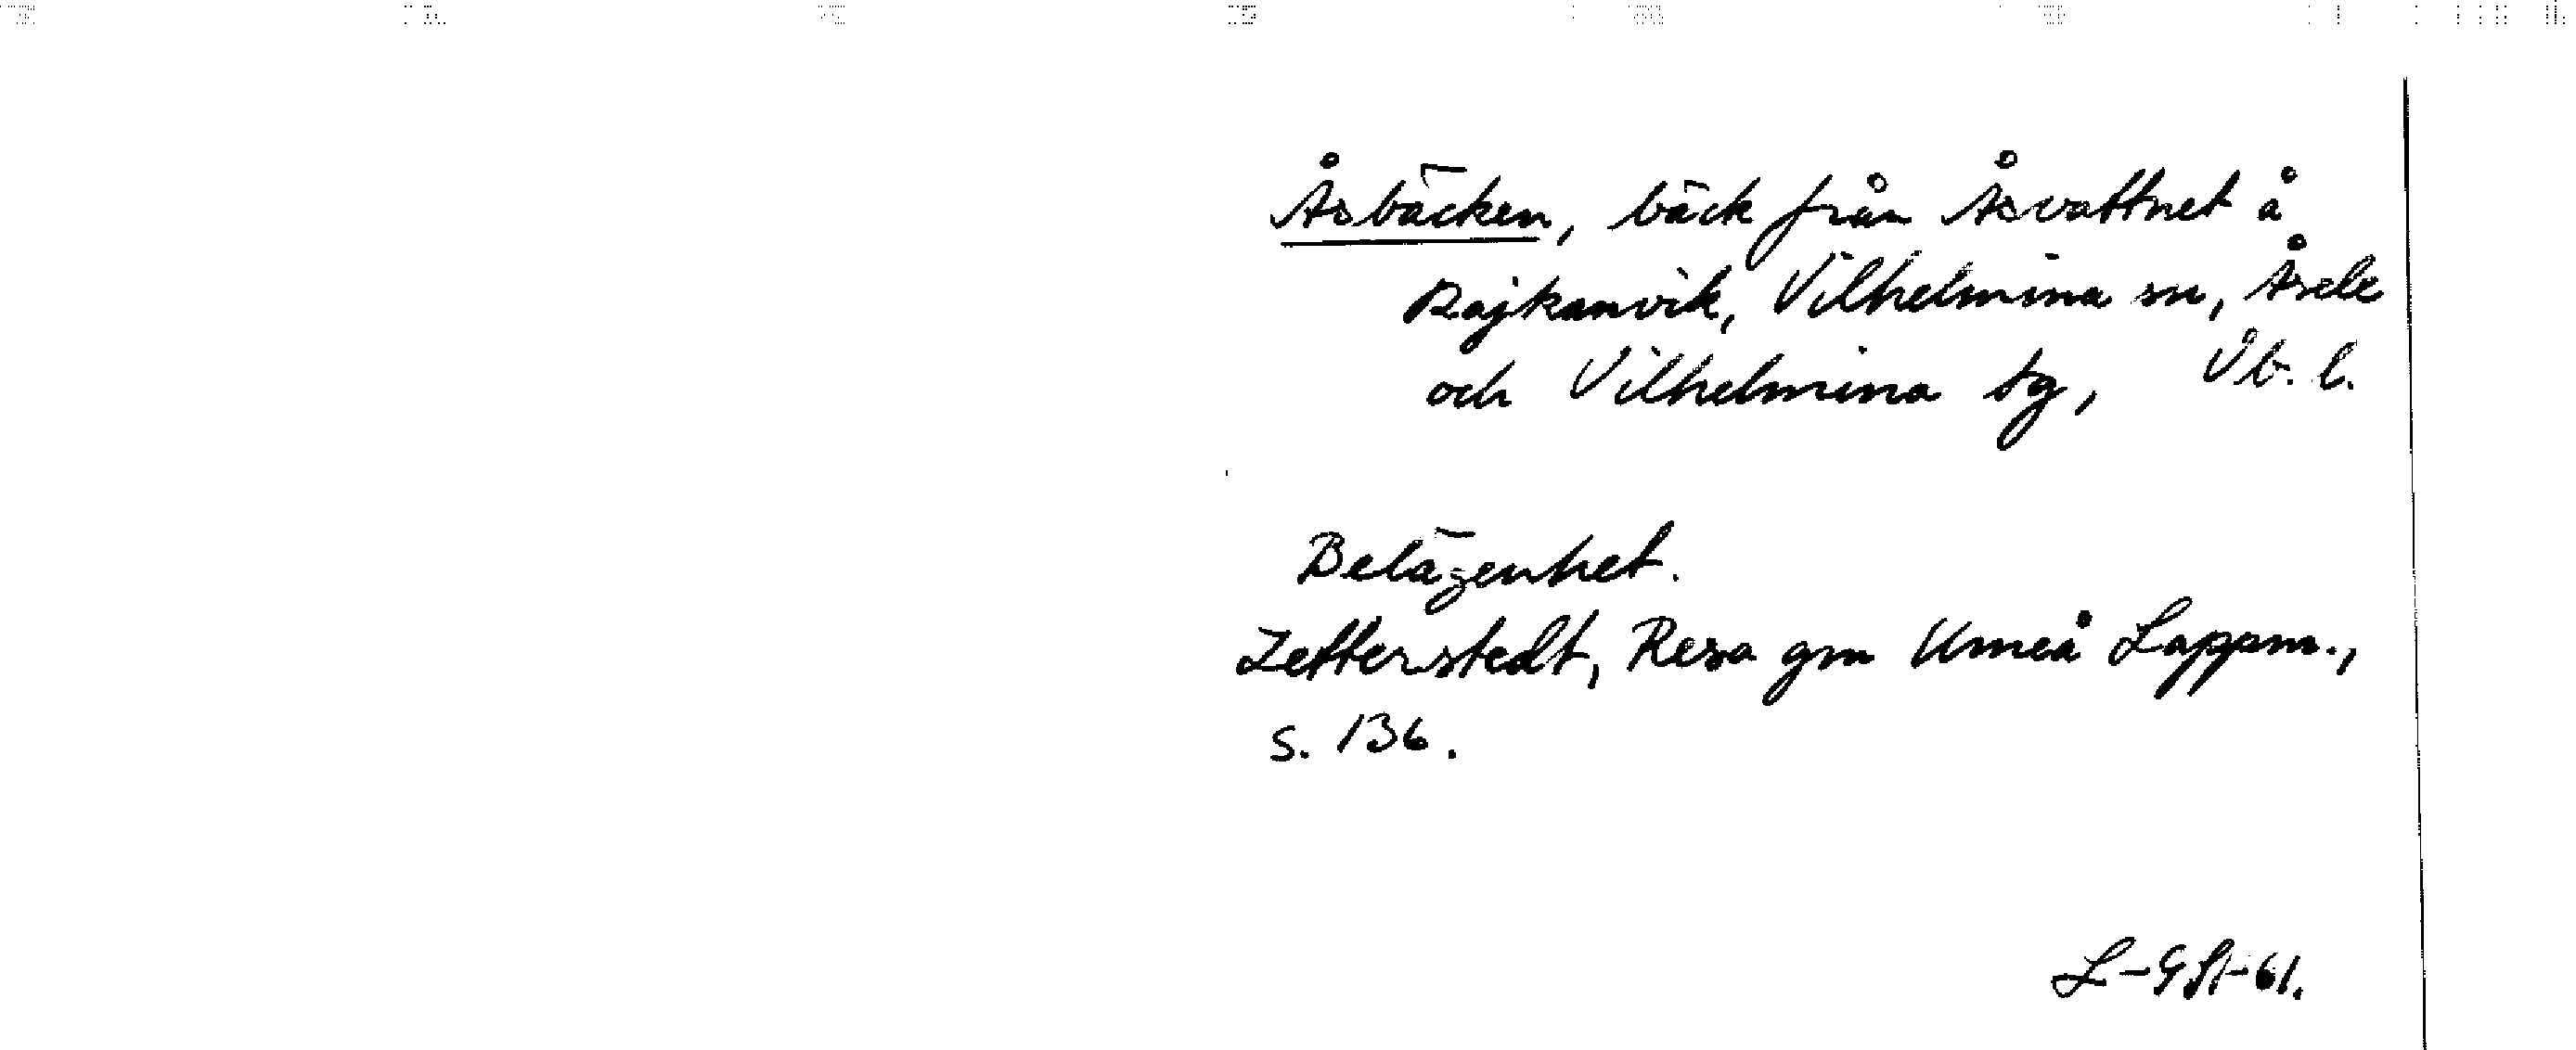 Åsbäcken, bäck från Åsvattnet å
Rajkanvik, Vilhelmina sn, Åsele
och Vilhelmina tg, Vb. l.
Belägenhet.
Zetterstedt, Resa gm Umeå Lappm.,
s. 136.
L-GSt-61.